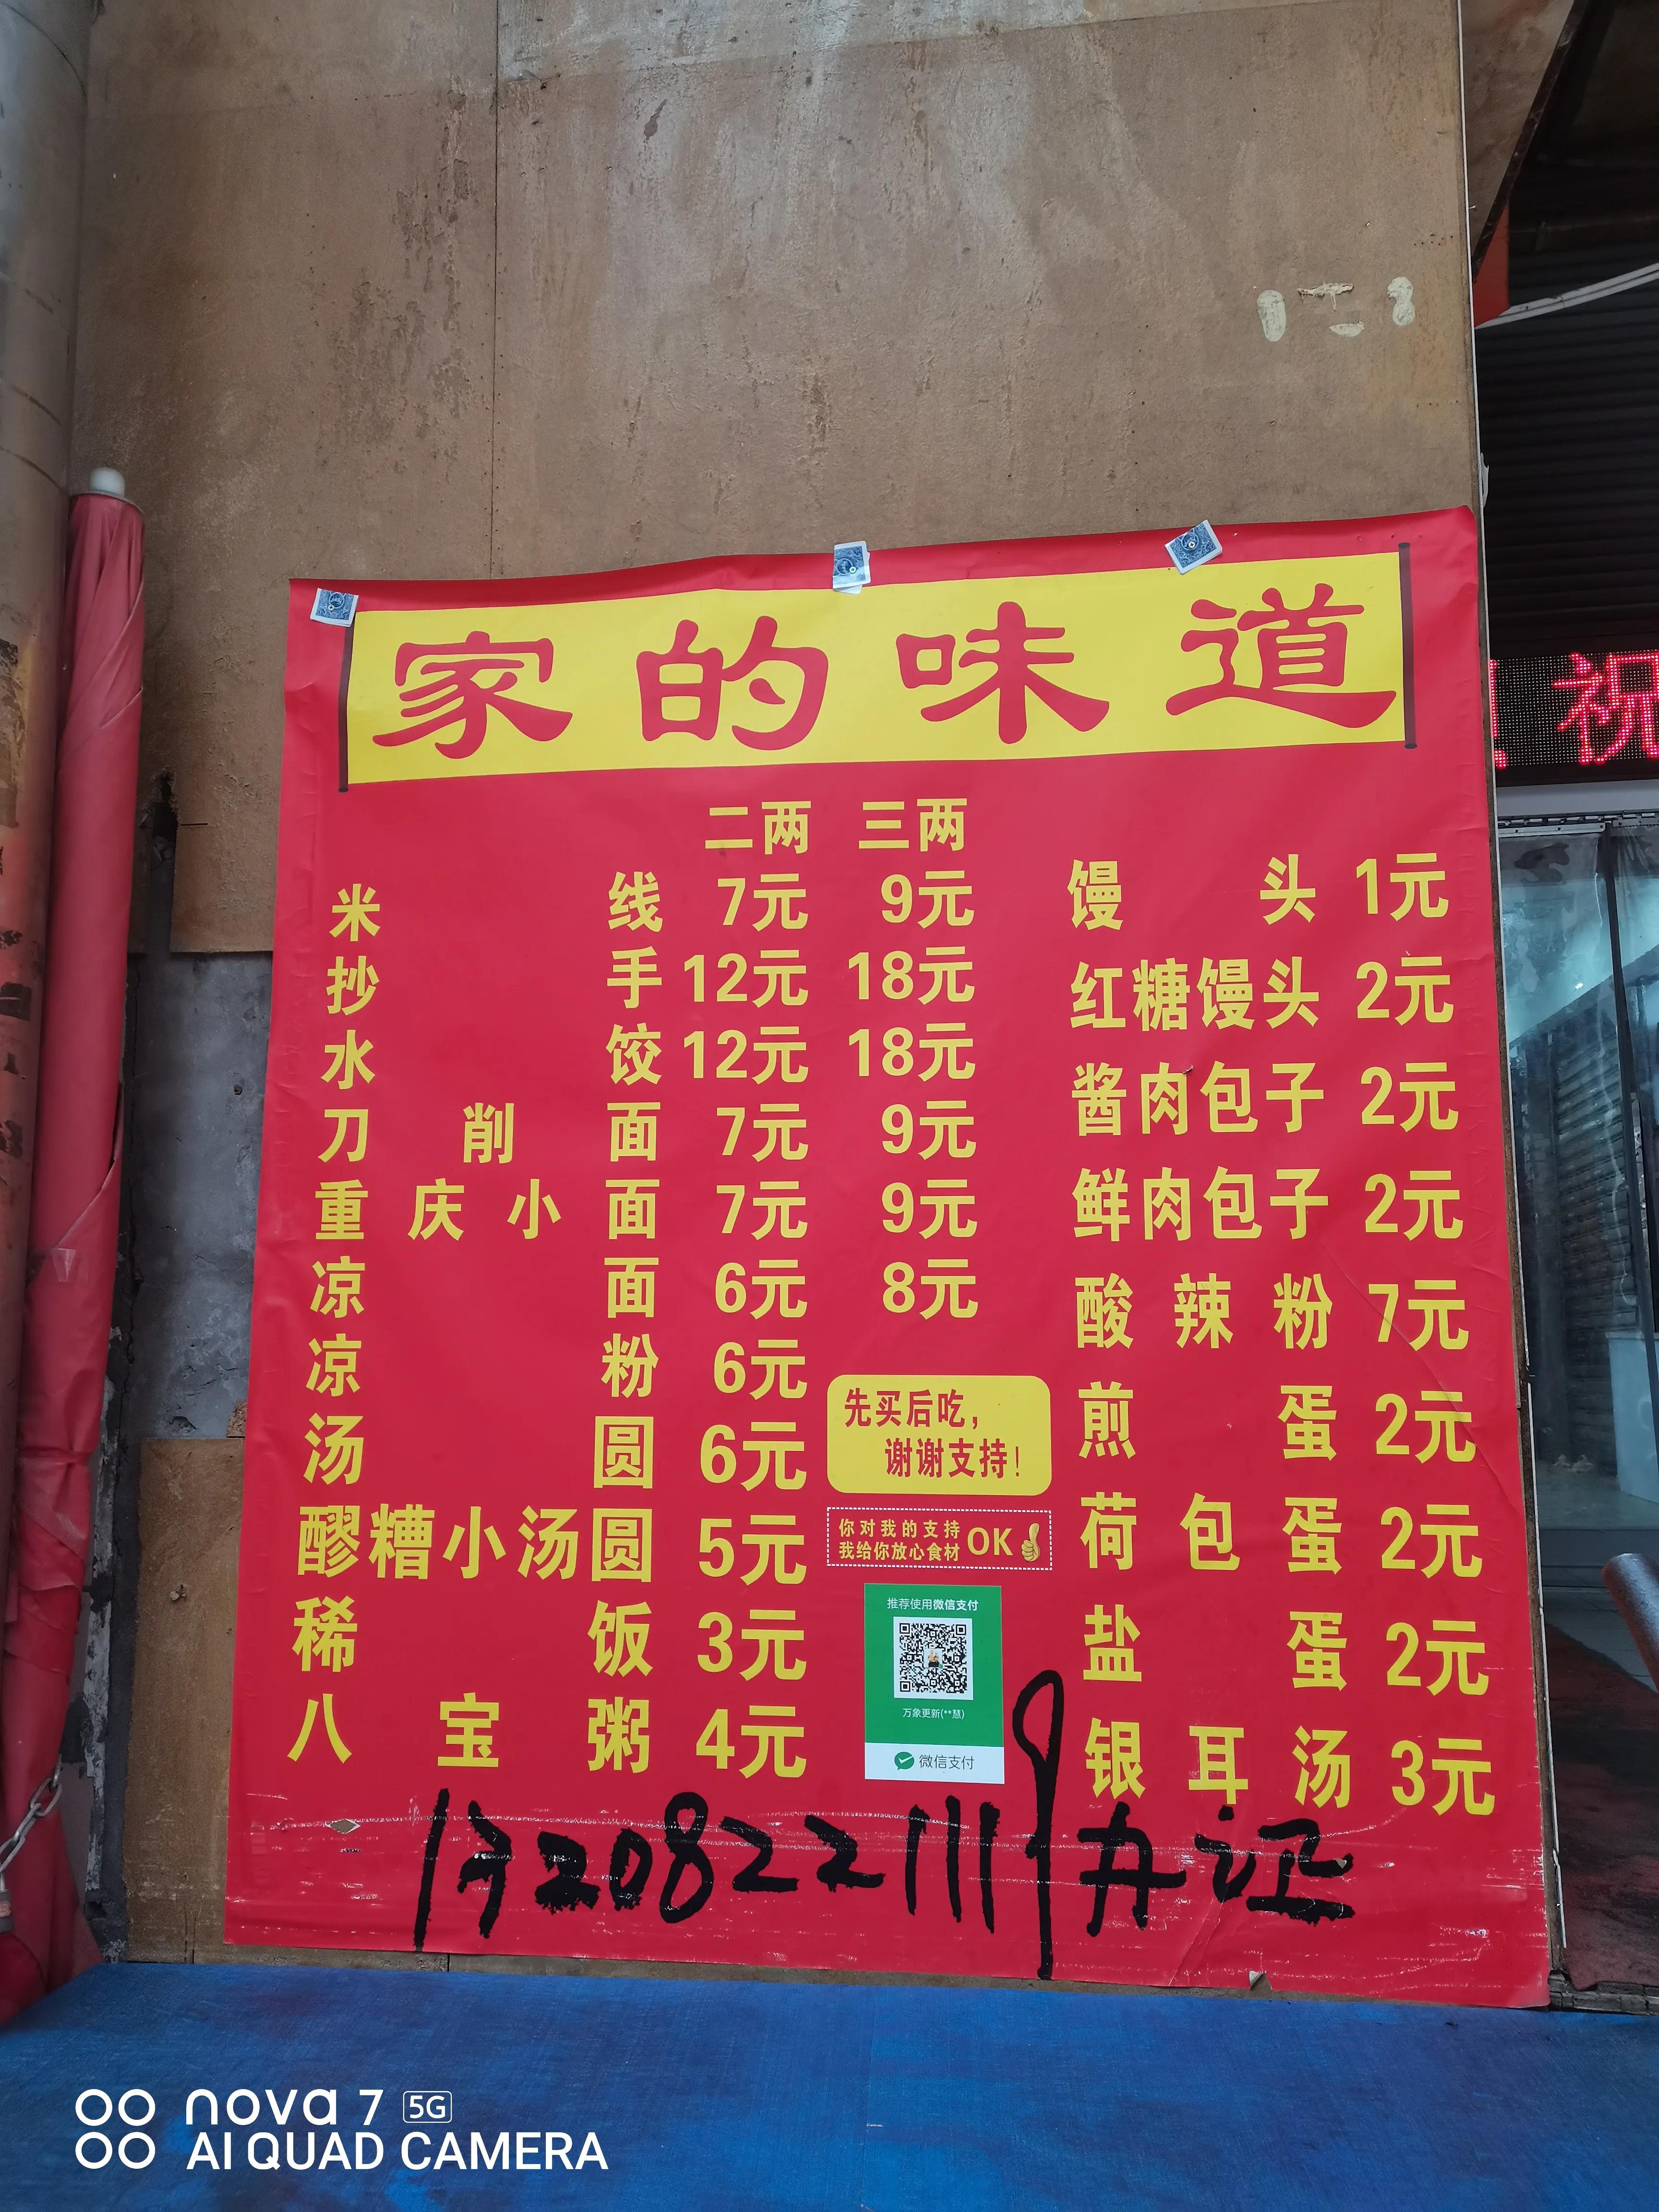 家的味道
二两 三两
米线 7元 9元
抄手 12元 18元
水饺 12元 18元
刀削面 7元 9元
重庆小面 7元 9元
凉面 6元 8元
凉粉 6元
汤圆 6元
醪糟小汤圆 5元
稀饭 3元
八宝粥 4元
馒头 1元
红糖馒头 2元
酱肉包子 2元
鲜肉包子 2元
酸辣粉 7元
煎蛋 2元
荷包蛋 2元
盐蛋 2元
银耳汤 3元
先买后吃，
谢谢支持！
你对我的支持
我给你放心食材 OK
推荐使用微信支付
万象更新(**慧)
微信支付
13208221119办证
祝
nova 7 5G
AI QUAD CAMERA